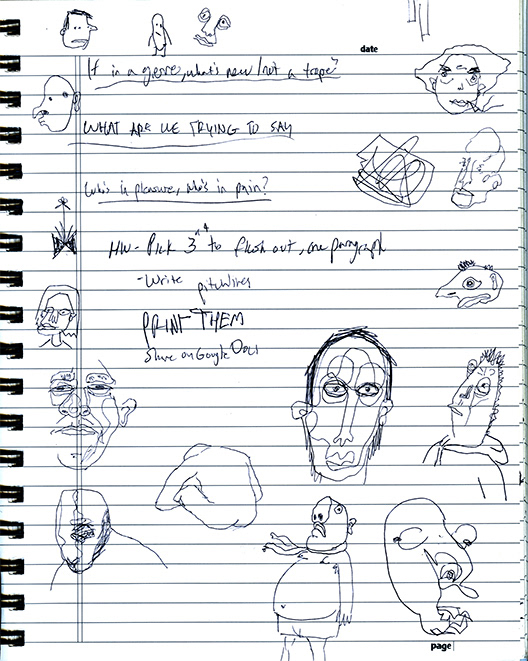 date
If in a genre, what's new/not a trope?
WHAT ARE WE TRYING TO SAY
Who's in pleasure, who's in pain?
HW- Pick 3 to flesh out, one paragraph
-Write pitchlines
PRINT THEM
Share on Google Docs
page